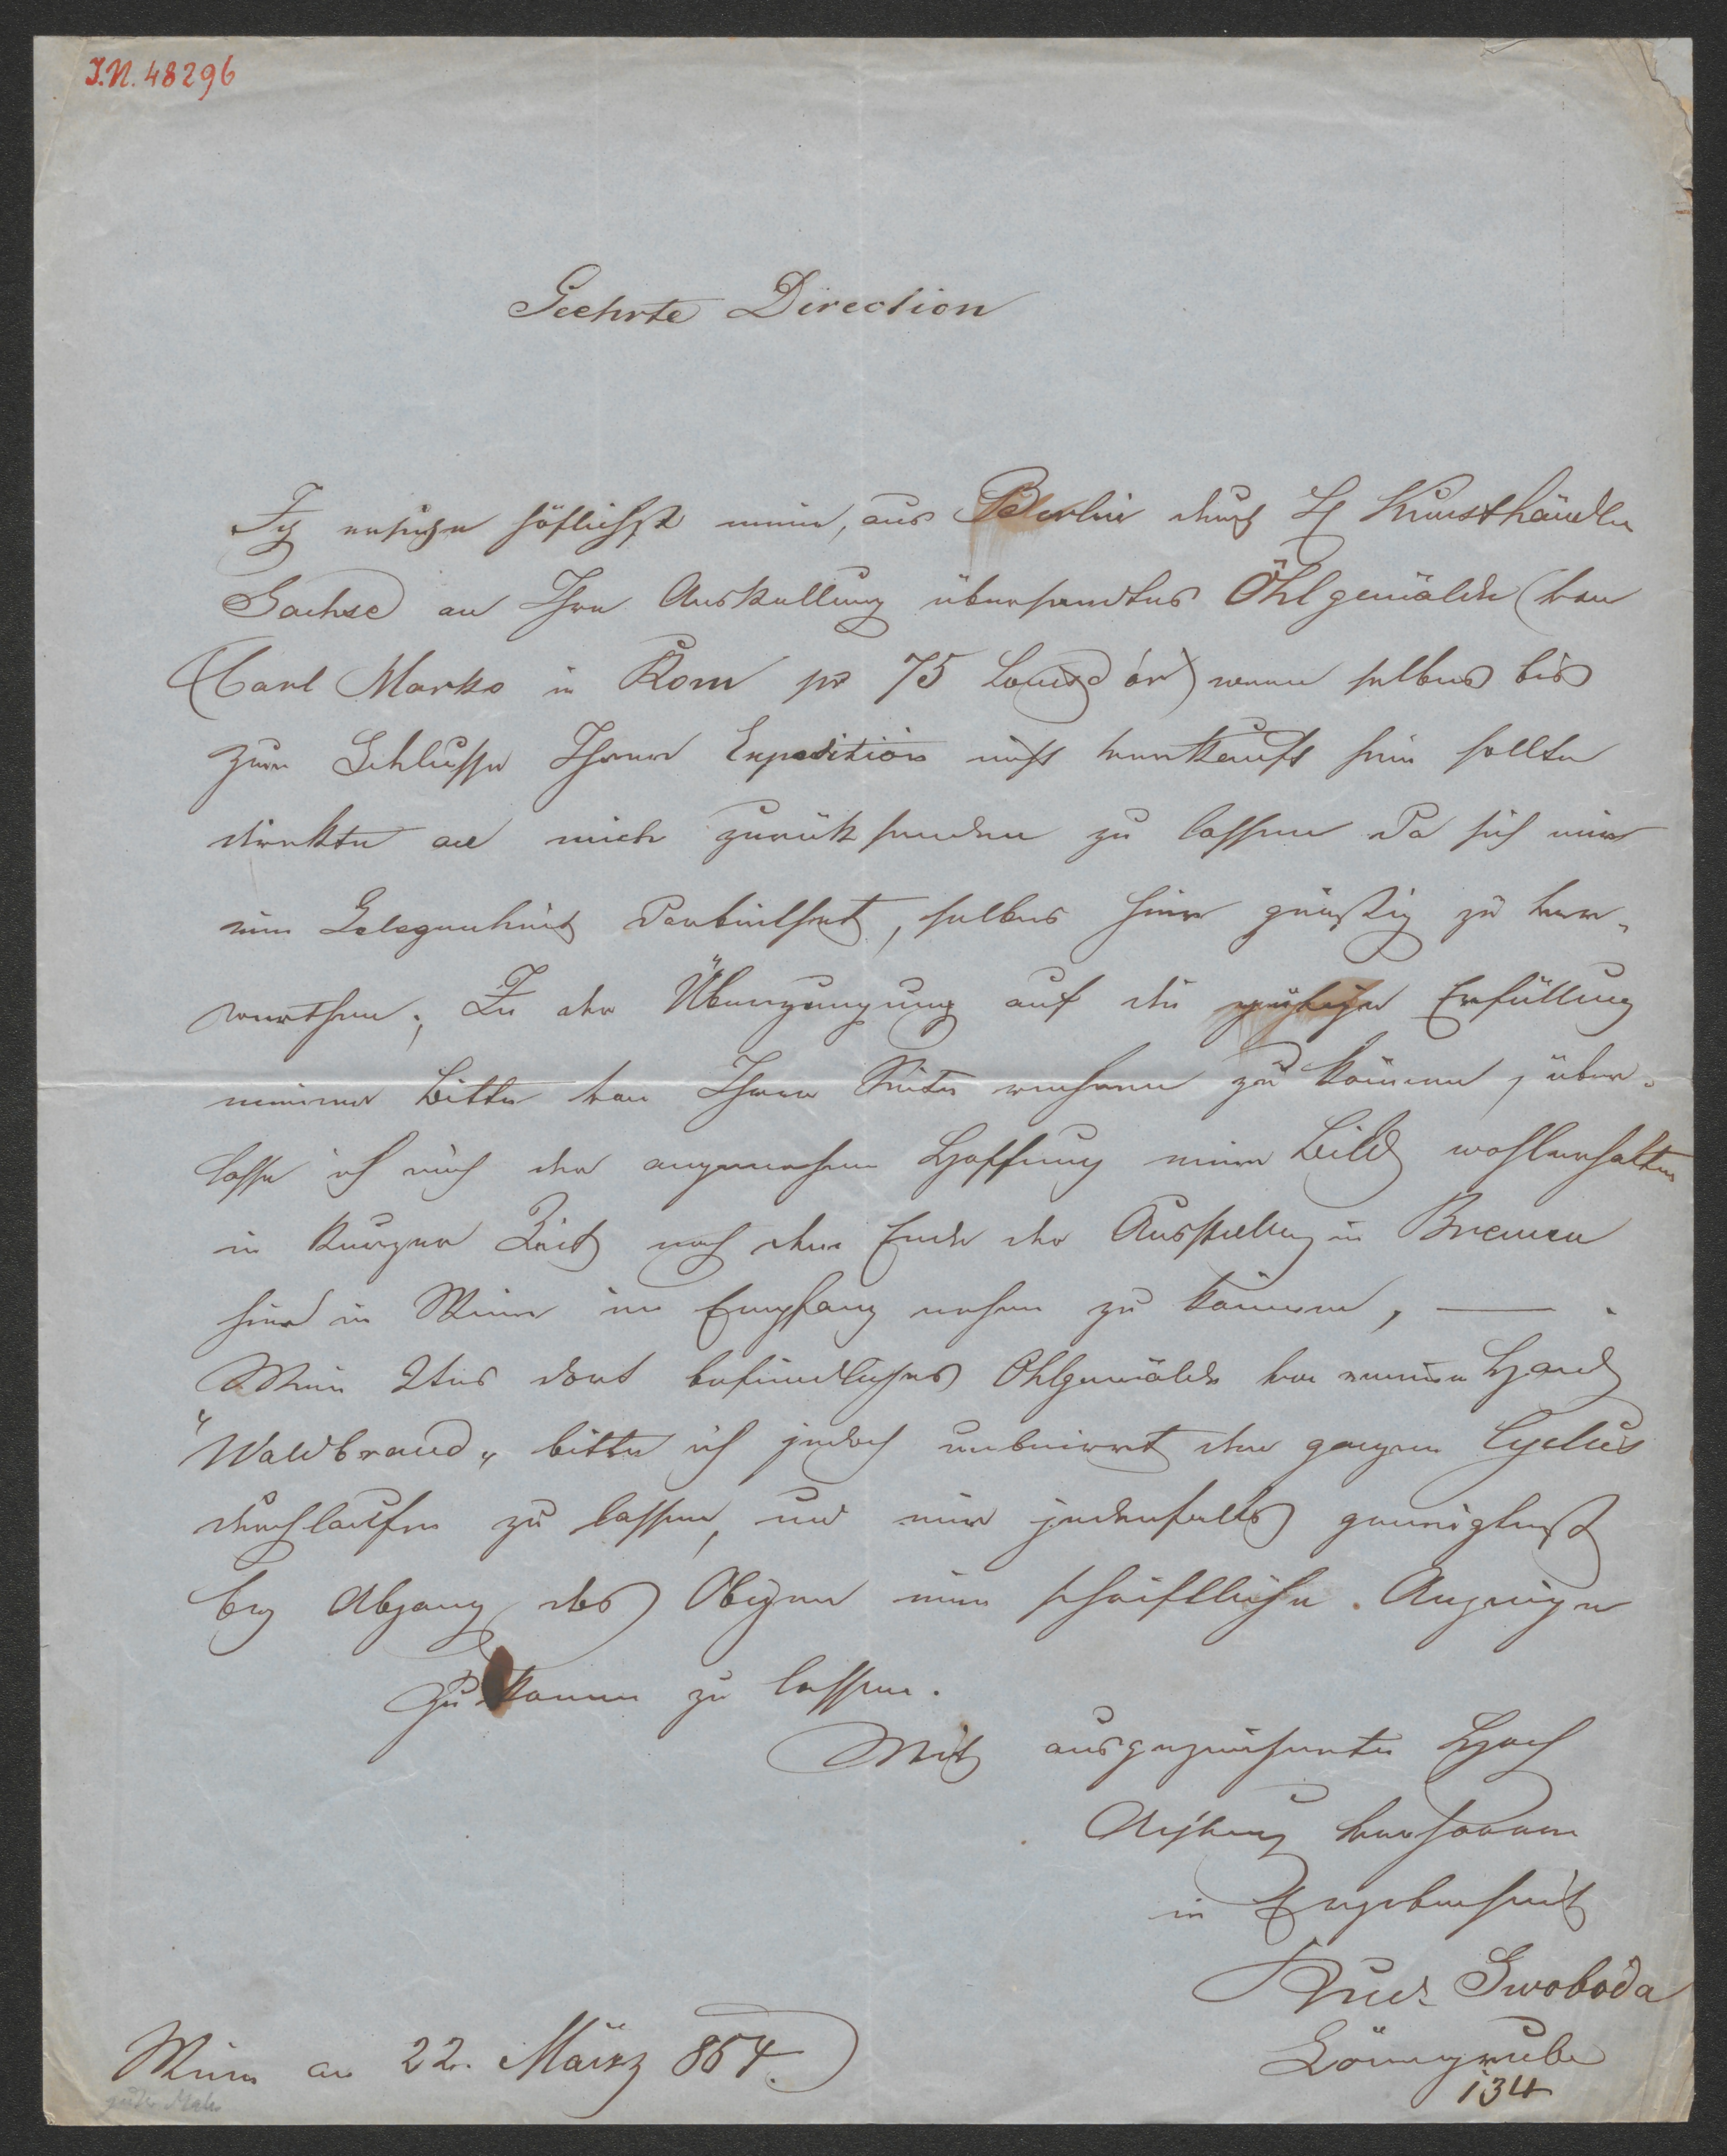 I.N. 48296
Geehrte Direction
Ich ersuche höflichst mein, aus Berlin durch H Kunsthändler
Sachse an Ihre Ausstellung übersendtes Öhlgemälde (von
(Carl Marko in Rom pr 75 Louisd'or) wenn selbes bis
zum Schlusse Ihrer Exposition nicht verkauft sein sollte
direkte an mich zurük senden zu lassen da sich mir
eine Gelegenheit darbiethet, selbes hier günstig zu ver-
werthen; In der Überzeugung auf die gütige Erfüllung
meiner Bitte von Ihrer Seite rechnen zu können, über-
lasse ich mich der angenehmen Hoffnung mein Bild wohlerhalten
in kurzer Zeit nach dem Ende der Ausstellung in Bremen
hier in Wien in Empfang nehmen zu können, — .
Mein 2tes dort befindliches Öhlgemälde von meiner Hand
"Waldbrand" bitte ich jedoch unbeirrt den ganzen Cyclus
durchlaufen zu lassen, und mir jedenfalls geneigtest
bey Abgang des Obigen eine schriftliche Anzeige
zukommen zu lassen.
Mit ausgezeichneter Hoch
Achtung verharre
in Ergebenheit
Rud. Swoboda
Laimgrube
134
Wien am 22. März 854.